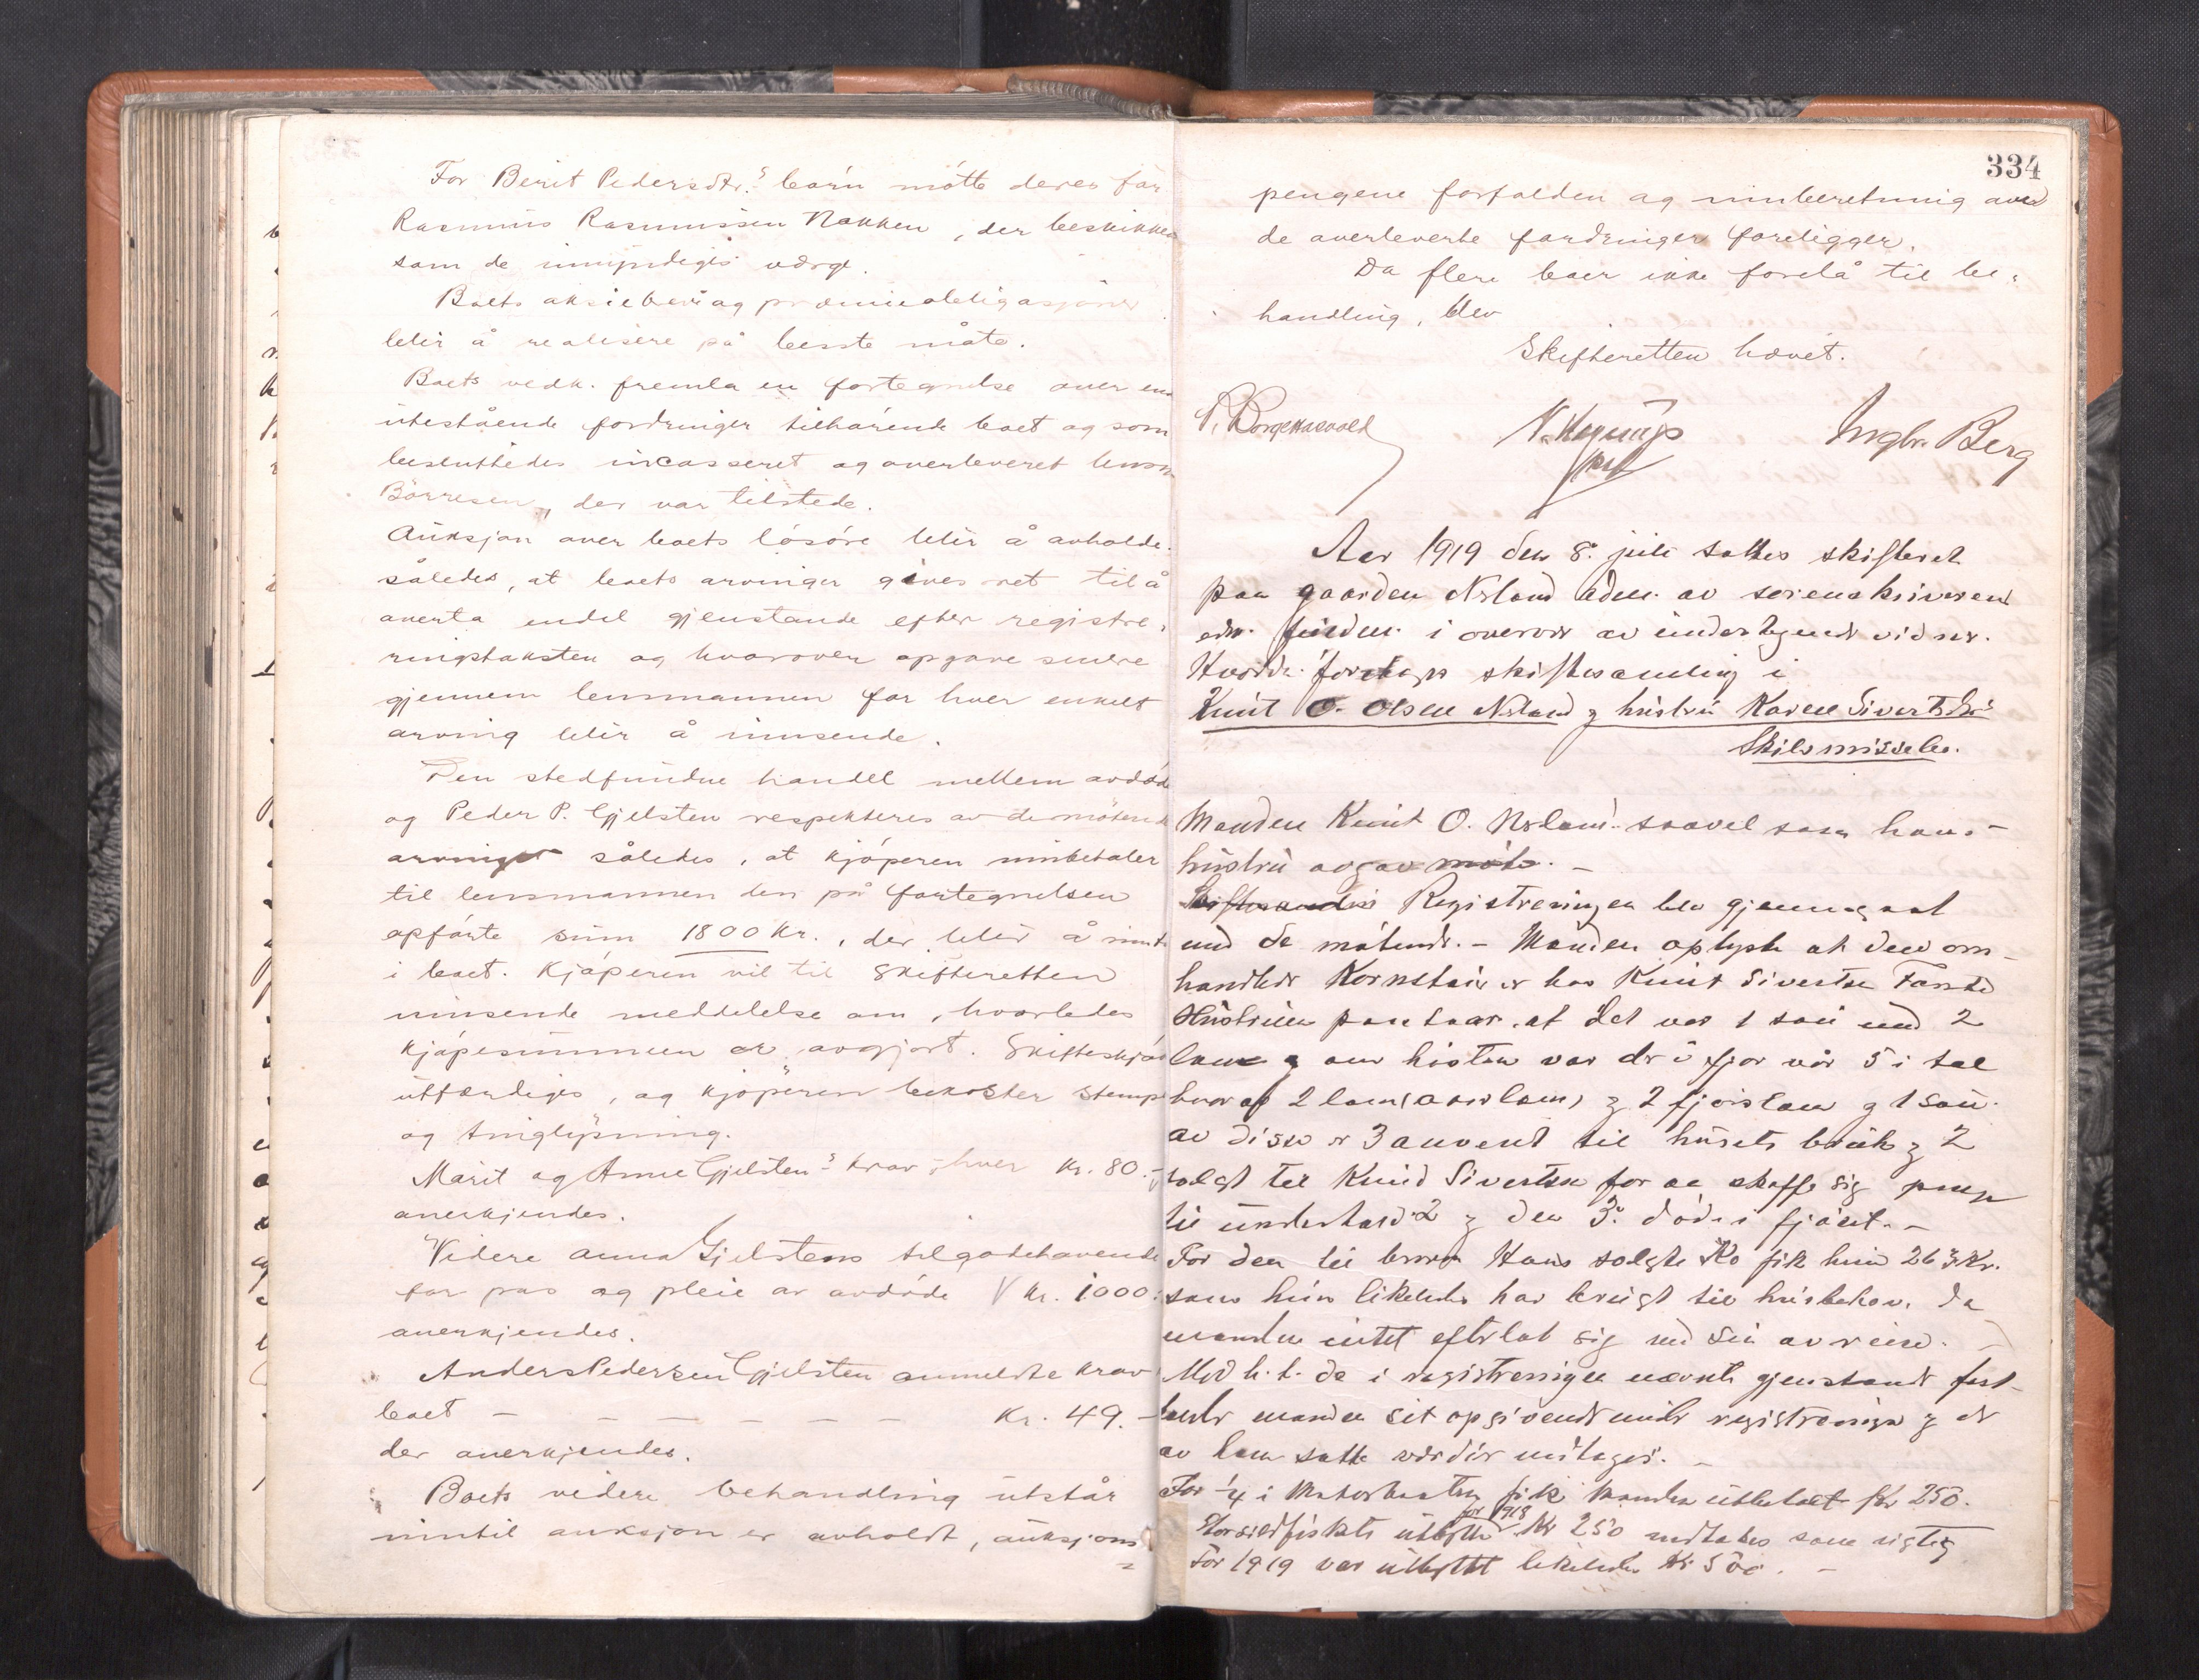 For Berit Pedersdtr.s barn mötte deres far
Rasmus Rasmussen Nakken, der beskikkes
som de umyndiges værge.
Boets aksiebrev og præmieobligasjoner
blir å realisere på beste måte.
Boets vedk. fremla en fortegnelse over en
utestående fordringer tilhörende boet og som
besluttedes incasseret og overleveret lensm.
Börresen, der var tilstede.
Auksjon over boets lösöre blir å avholde
således, at boets arvinger gives ret til å
overta endel gjenstande efter registre-
ringstaksten og hvorover opgave senere
gjennem lensmannen for hver enkelt
arving blir å innsende.
Den stedfundne handel mellem avdöde
og Peder P. Gjelsten respekteres av de mötende
arvinger således, at kjöperen innbetaler
til lensmannen den på fortegnelsen
opförte sum 1800 kr., der blir å innta
i boet. Kjöperen vil til Skifteretten
innsende meddelelse om, hvorledes
kjöpesummen er avgjort. Skifteskjöte
utfærdiges, og kjöperen bekoster stempel
og tinglysning.
Marit og Anne Gjelstens krav, hver kr. 80.-
anerkjendes.
Videre Anna Gjelstens tilgodehavende
for pas og pleie av avdöde kr. 1000:
anerkjendes.
Anders Pedersen Gjelsten anmeldte krav
boet - - - - - - kr. 49.-
der anerkjendes.
Boets videre behandling utstår
inntil auksjon er avholdt, auksjons-
334
pengene forfalden og innberetning over
de overleverte fordringer foreligger.
Da flere boer ikke forelå til be-
handling, blev
Skifteretten hævet.
Ingbr. Berg
Aar 1919 den 8. juli sattes skifteret
paa gaarden Nesland adm. av sorenskriveren
ved fuldm. i overvær av undertegnede vidner.
Hvorda foretoges skiftesamling i
Knut O. Olsen Nesland & hustru Karen Sivertsdtrs
Skilsmissebo.
Manden Knut O. Nesland saavel som hans
hustru avgav möte. -
Registreringen blev gjennemgaat
med de mötende. - Manden oplyste at den om-
handlede Kornstöir er hos Knut Sivertsen
Hustruen paastaar at det var 1 sau med 2
lam & om hösten var der i fjor vår 5 i tal
hvoraf 2 lam & 2 fjorslam & 1 sau.
av disse er 3 anvent til husets bruk & 2
solgt til Knud Sivertsen for aa skaffe sig penge
til underhold 2 & den 3. döde i fjöset. -
For den til broren Hans solgte Ko fik hun 263 Kr.
som hun likeledes har brugt til husbehov, da
manden intet efterlot sig ved sin avreise.
Med h.t. de i registreringen nævnte gjenstande fast-
holdt manden sit opgivende under registreringen & de
av ham satte værdier medtages. -
For 1/4 i Motorbaaten fik manden utbetalt Kr 250.
Storsildfiskets utbytte for 1918 Kr 250 medtages som rigtig
For 1919 var utbyttet likeledes Kr 500. -